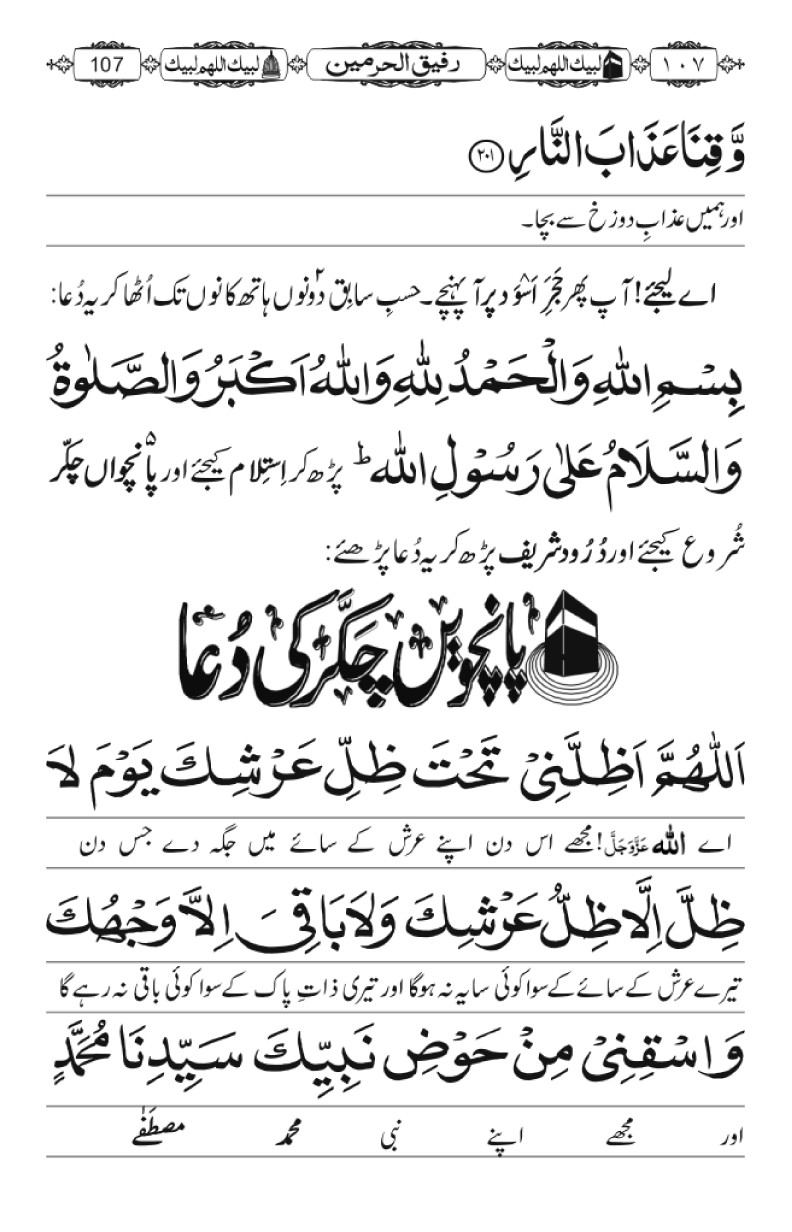 ١٠٧ لبیك اللهم لبیك رفیق الحرمین لبیك اللهم لبیك 107
وَّ قِنَا عَذَابَ النَّارِ ﴿۲۰۱﴾
اور ہمیں عذابِ دوزخ سے بچا۔
اے لیجئے! آپ پھر حَجَرِ اَسْوَد پر آ پہنچے۔ حسبِ سابق دونوں ہاتھ کانوں تک اُٹھا کر یہ دُعا:
بِسْمِ اللّٰهِ وَالْحَمْدُ لِلّٰهِ وَاللّٰهُ اَكْبَرُ وَالصَّلٰوةُ
وَالسَّلَامُ عَلٰی رَسُوْلِ اللّٰه ؕ پڑھ کر اِستِلام کیجئے اور پانچواں چکّر
شُروع کیجئے اور دُرُود شریف پڑھ کر یہ دُعا پڑھئے:
پانچویں چکّر کی دُعا
اَللّٰهُمَّ اَظِلَّنِیْ تَحْتَ ظِلِّ عَرْشِكَ یَوْمَ لَا
اے اللّٰه عَزَّوَجَلَّ! مجھے اس دن اپنے عرش کے سائے میں جگہ دے جس دن
ظِلَّ اِلَّا ظِلُّ عَرْشِكَ وَلَا بَاقِیَ اِلَّا وَجْهُكَ
تیرے عرش کے سائے کے سوا کوئی سایہ نہ ہوگا اور تیری ذاتِ پاک کے سوا کوئی باقی نہ رہے گا
وَاسْقِنِیْ مِنْ حَوْضِ نَبِیِّكَ سَیِّدِنَا مُحَمَّدٍ
اور مجھے اپنے نبی محمد مصطَفٰے